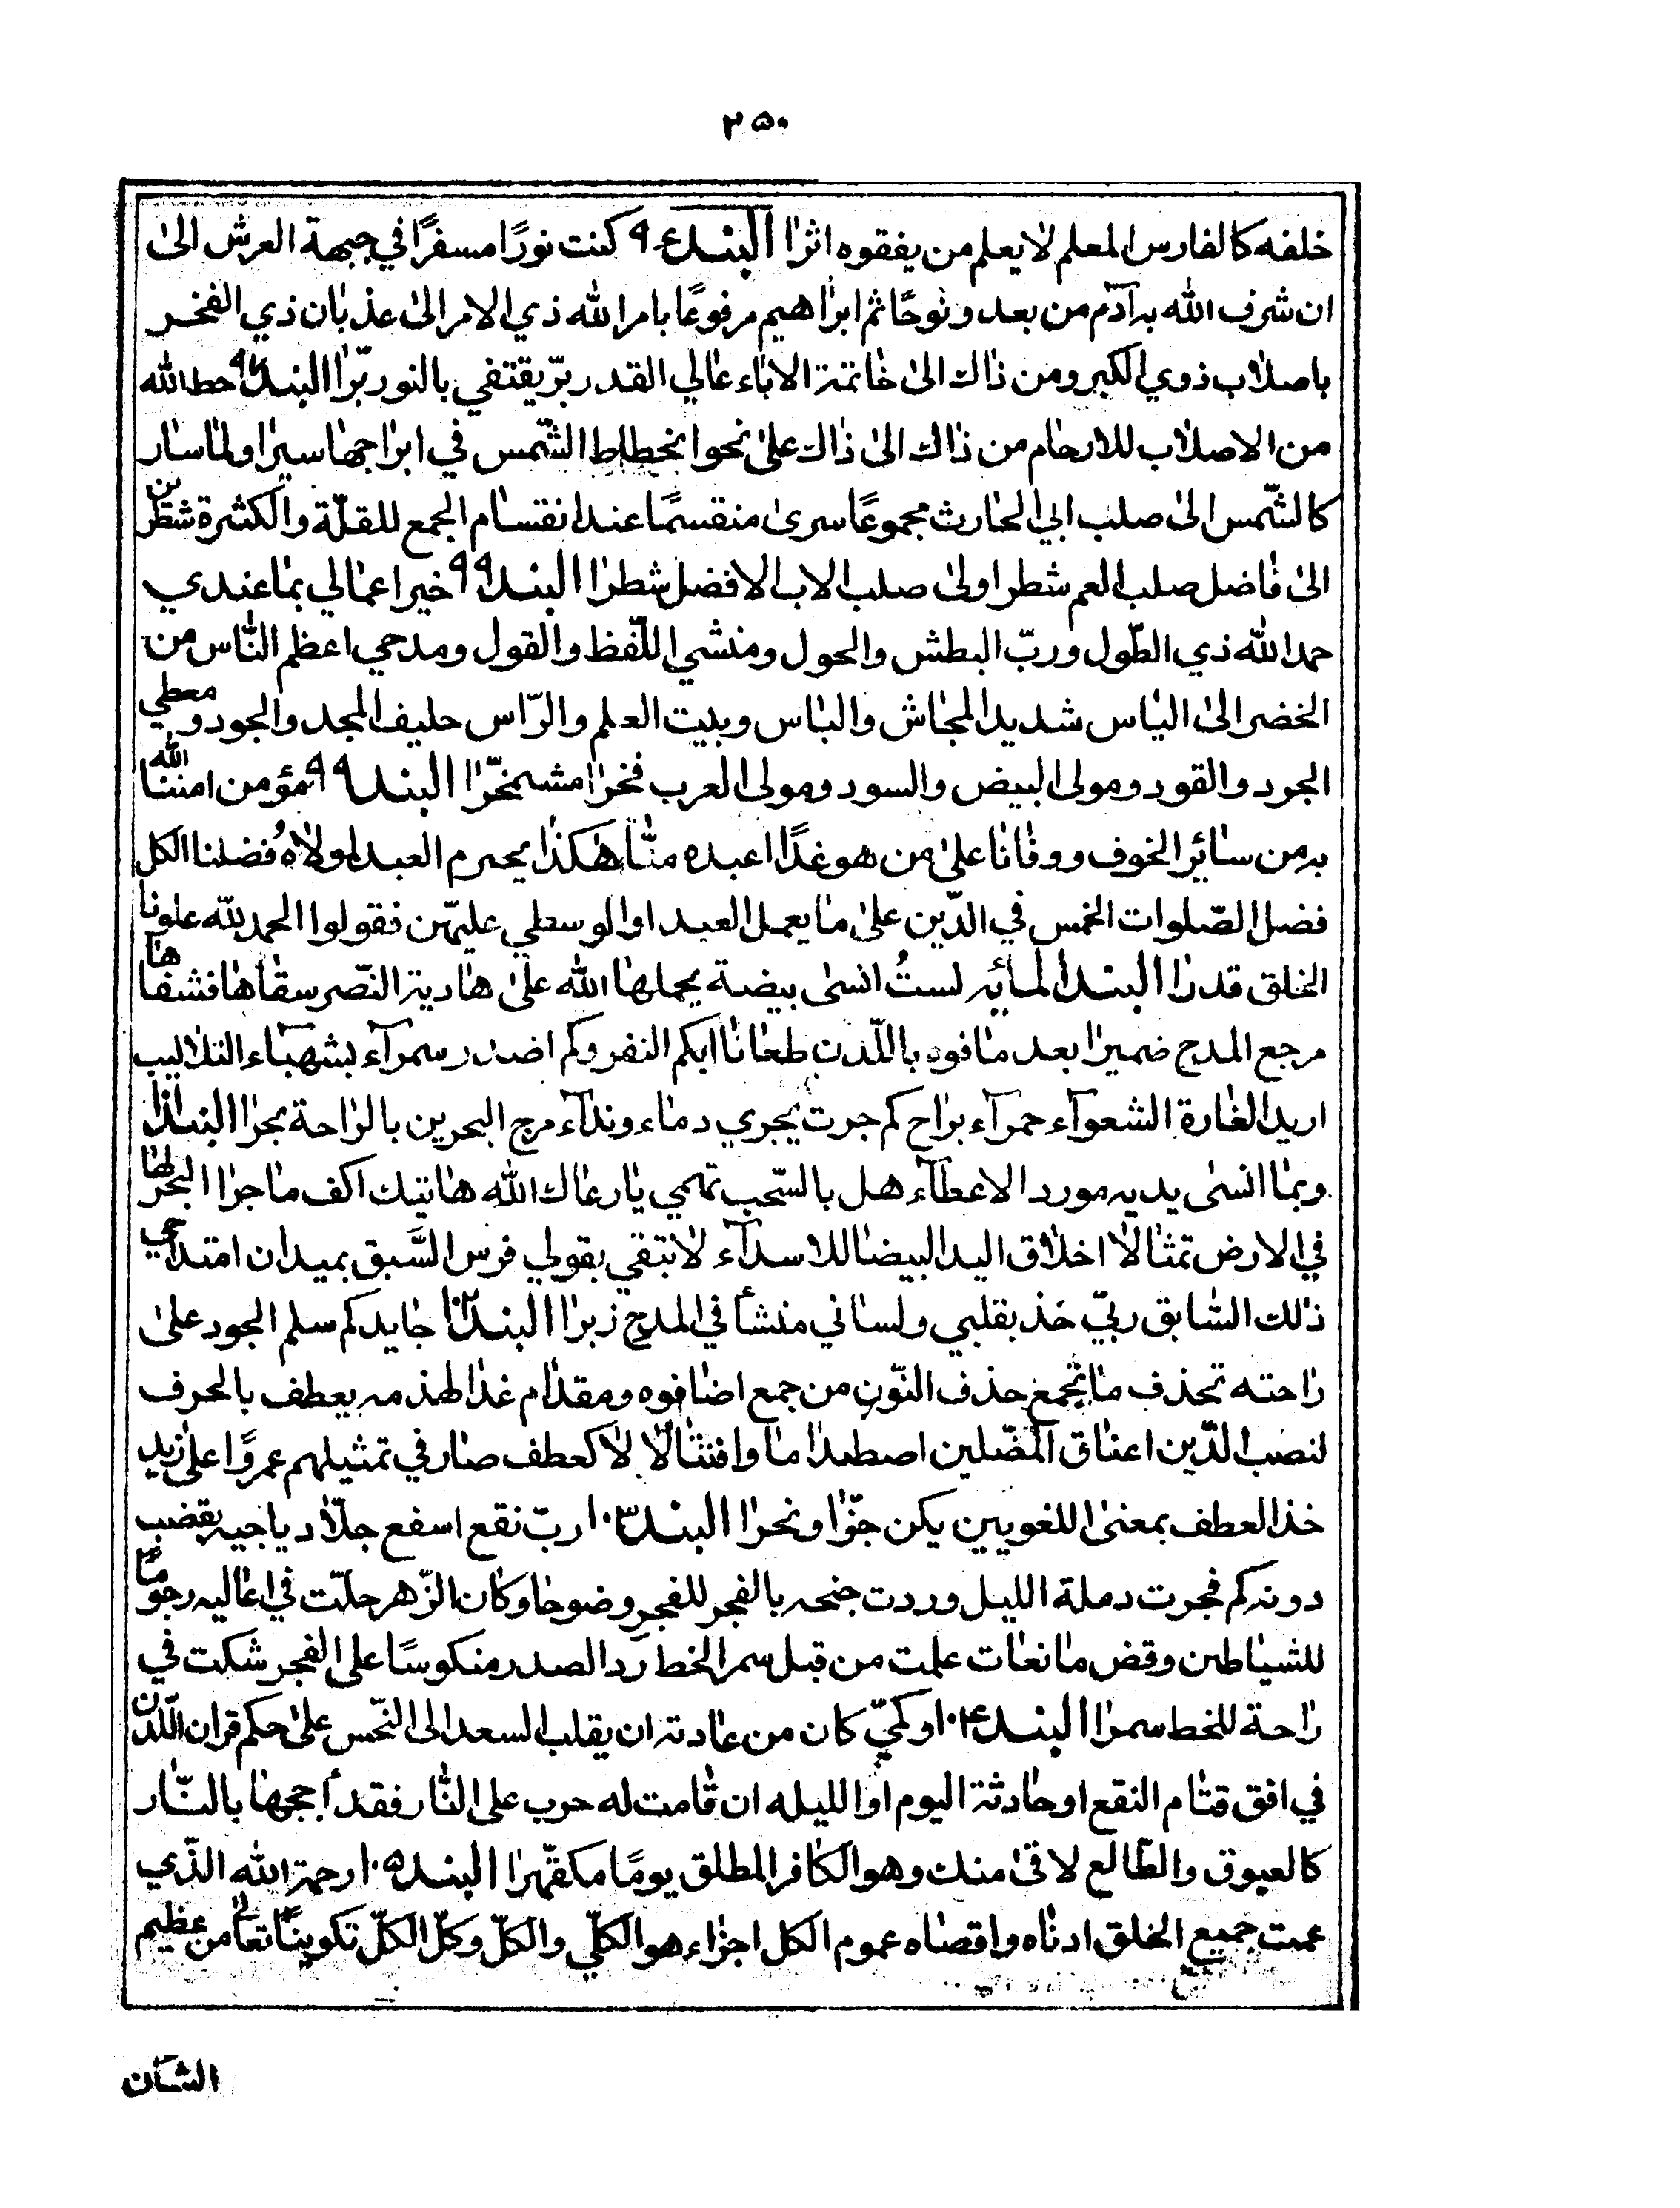 ٢٥٠
خلفه كالفارس المعلم لا يعلم من يفقوه اثرا البند ٩٤ كنت نورًا مسفرًا في جبهة العرش الى
ان شرف الله به آدم من بعد ونوحًا ثم ابراهيم مرفوعًا بامر الله ذي الامر الى عذبان ذي الفخر
باصلاب ذوي الكبر ومن ذاك الى خاتمة الاباء عالي القدر برّ يقتفي بالنور برّا البند حط الله
من الاصلاب للارحام من ذاك الى ذاك على نحو انحطاط الشّمس في ابراجها سيرا ولما سار
كالشّمس الى صلب ابي الحارث مجموعًا سرى منقسمًا عند انقسام الجمع للقلّة والكثرة شطرين
الى فاضل صلب العم شطرا ولى صلب الاب الافضل شطرا البند ٩٩ خير اعمالي بما عندي
حمد الله ذي الطّول وربّ البطش والحول ومنشي اللّفظ والقول ومدحي اعظم النّاس من
الخضر الى الياس شديد المجاش والباس وبيت العلم والرّاس حليف المجد والجود ومعطي
الجرد والقود ومولى البيض والسود ومولى العرب فخرا مشمخرّا البند ٩٩ مؤمن امننا الله
به من سائر الخوف ووقانا على من هو غدًا اعبده منّا هكذا يحرم العبد اولاه فضلنا الكل
فضل الصّلوات الخمس في الدّين على ما يعمل العبد او الوسطى عليهّن فقولوا الحمد لله علونا
الخلق قدرا البند المائه لستُ انسى بيضة يحملها الله على هادية النّصر سقاها فشفاها
مرجع المدح ضميرا بعد ما فوه باللّدن طعانا ابكم النفر وكم اضدر سمرآء بشهبآء التلابيب
اريد الغارة الشعوآء حمرآء براح كم جرت يجري دماء وندآء مرج البحرين بالراحة بحرا البند
وبما انسى يديه مورد الاعطآء هل بالسّحب تهمي يا رعاك الله هاتيك اكف ما جرا البحر لها
في الارض تمثالا اخلاق اليد البيضا للاسدآء لا بتقي بقولي فرس السَّبق بميدان امتداحي
ذلك السّابق ربيّ خذ بقلبي ولساني منشأ في المدح زبرا البند جايدكم سلم الجود على
راحته تحذف ما تجمع حذف النّون من جمع اضافوه ومقدام غدا لهذمه يعطف بالحرف
لنصب الدّين اعناق المضّلين اصطداما وافتثالا لا كعطف صار في تمثيلهم عمروًا على زيد
خذ العطف بمعنى اللغويين يكن جزّا ونحرا البند ١٠٣ ربّ نقع اسفع جلّا دياجيه بقضب
دونه كم فجرت دملة الليل وردت جنحه بالفجر للفجر وضوحا وكان الزّهر حلّت في اعاليه رجومًا
للشياطين وقض مانعات علمت من قبل سمر الخط رد الصدر منكوسًا على الفجر شكت في
راحة للخط سمرا البند ١٠٤ وكميّ كان من عادته ان يقلب السعد الى النّحس على حكم قران اللّدن
في افق قتام النقع او حادثة اليوم او الليله ان قامت له حرب على النّار فقد أججها بالنّار
كالعيوق والطّالع لاقى منك وهو الكافر المطلق يومًا مكفّهرا البند ١٠٥ رحمة الله الذّي
عمت جميع الخلق ادناه واقصاه عموم الكل اجزاء هو الكلّي والكلّ وكلّ الكلّ تكوينًا تعالى من عظيم
الشان